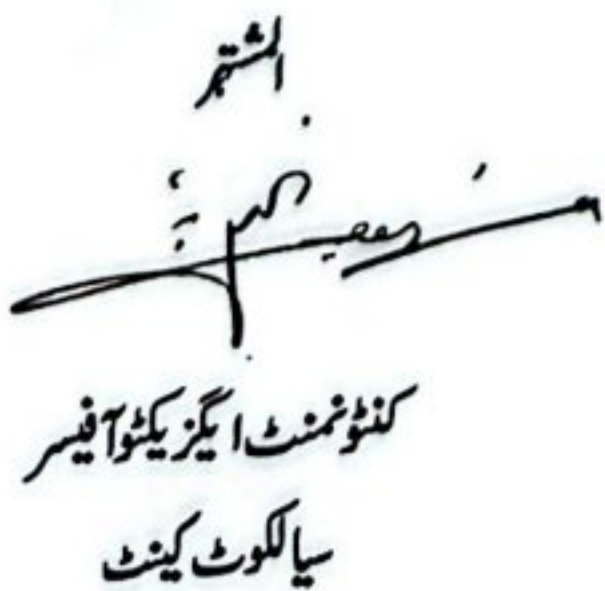 المشتہر
کنٹونمنٹ ایگزیکٹو آفیسر
سیالکوٹ کینٹ